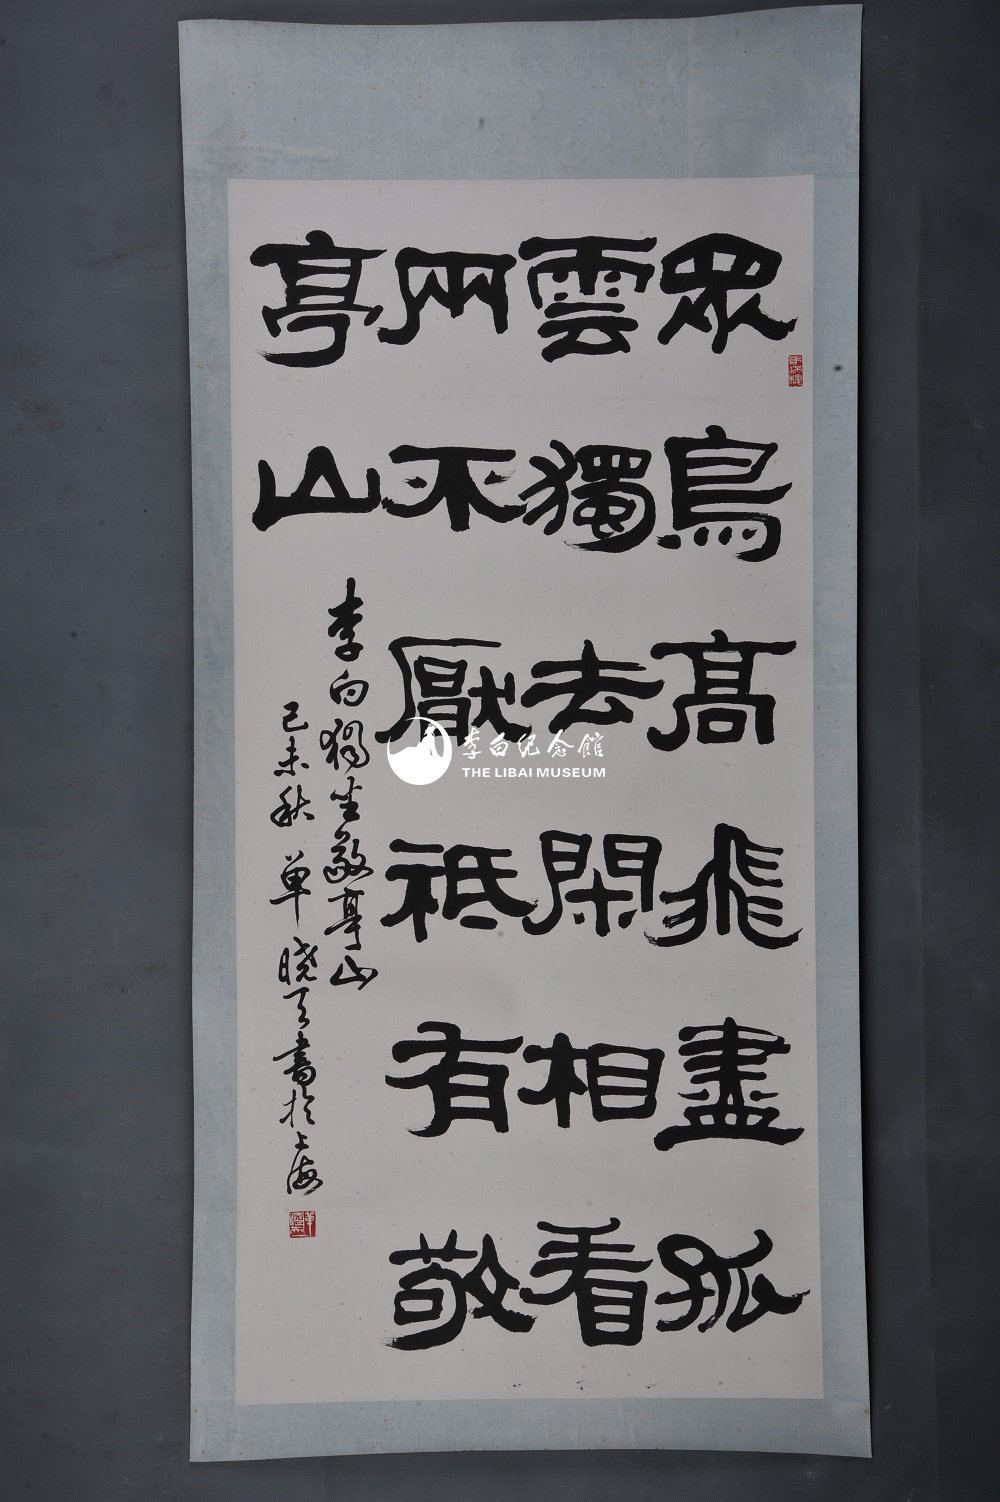 眾鳥高飛盡孤
雲獨去閑相看
兩不厭祗有敬
亭山
李白獨坐敬亭山
己未秋 单晓天書於上海
李白纪念館
THE LIBAI MUSEUM